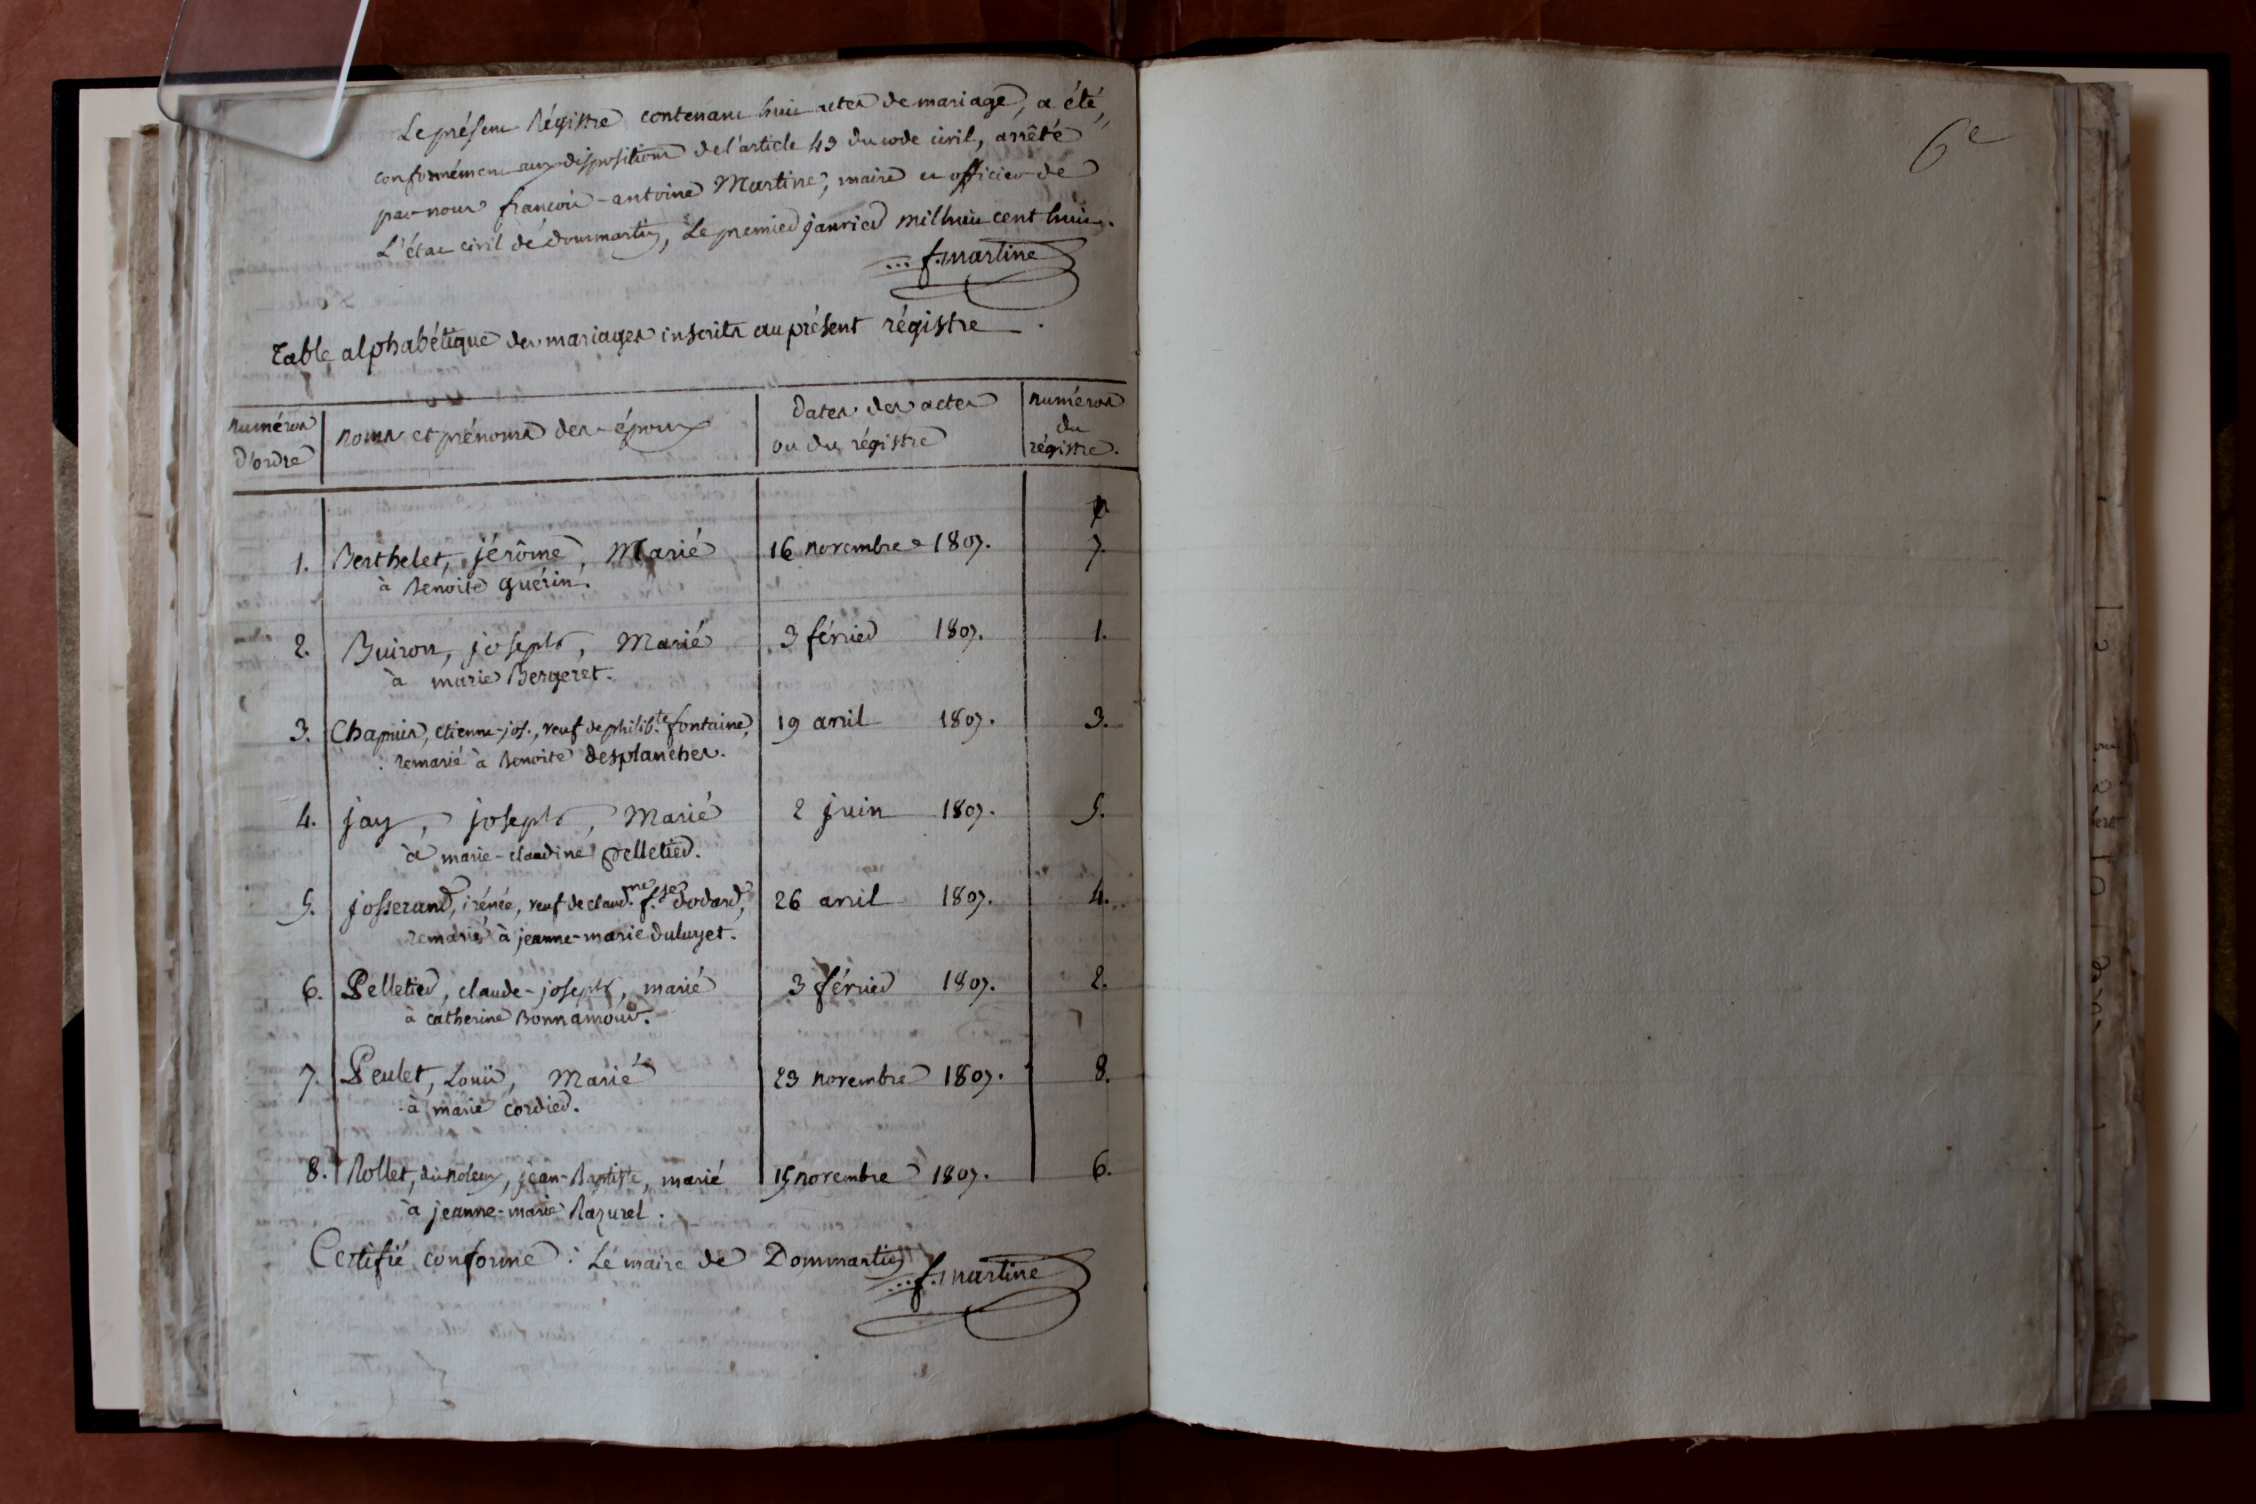 Le présent Régistre contenant huit actes de mariage, a été,
conformément aux dispositions de l'article 43 du code civil, arrêté
par nous françois-antoine Martine, maire et officier de
L'état civil de dommartin, Le premier janvier mil huit cent huit.
f. martine
Table alphabétique des mariages inscrits au présent régistre.
numéros d'ordre
noms et prénoms des époux
Dates des actes ou du régistre
numéros du régistre.
1. Berthelet, jérôme, Marié 16 novembre 1807. 7.
à Benoite guérin.
2. Buiron, joseph, Marié 3 février 1807. 1.
à marie Bergeret.
3. Chapuis, etienne-jos., veuf de philib.te fontaine, 19 avril 1807. 3.
remarié à Benoite desplanches.
4. jay, joseph, Marié 2 juin 1807. 5.
à marie-claudine pelletier.
5. josserand, irénée, veuf de claud.ne f.se dodard, 26 avril 1807. 4.
remarié à jeanne-marie duluyet.
6. Pelletier, claude-joseph, marié 3 février 1807. 2.
à catherine Bonnamour.
7. Peulet, Louis, Marié 23 novembre 1807. 8.
à marie cordier.
8. Rollet, dit noleux, jean-Baptiste, marié 15 novembre 1807. 6.
à jeanne-marie Razurel.
Certifié conforme : Le maire de Dommartin
f. martine
6e